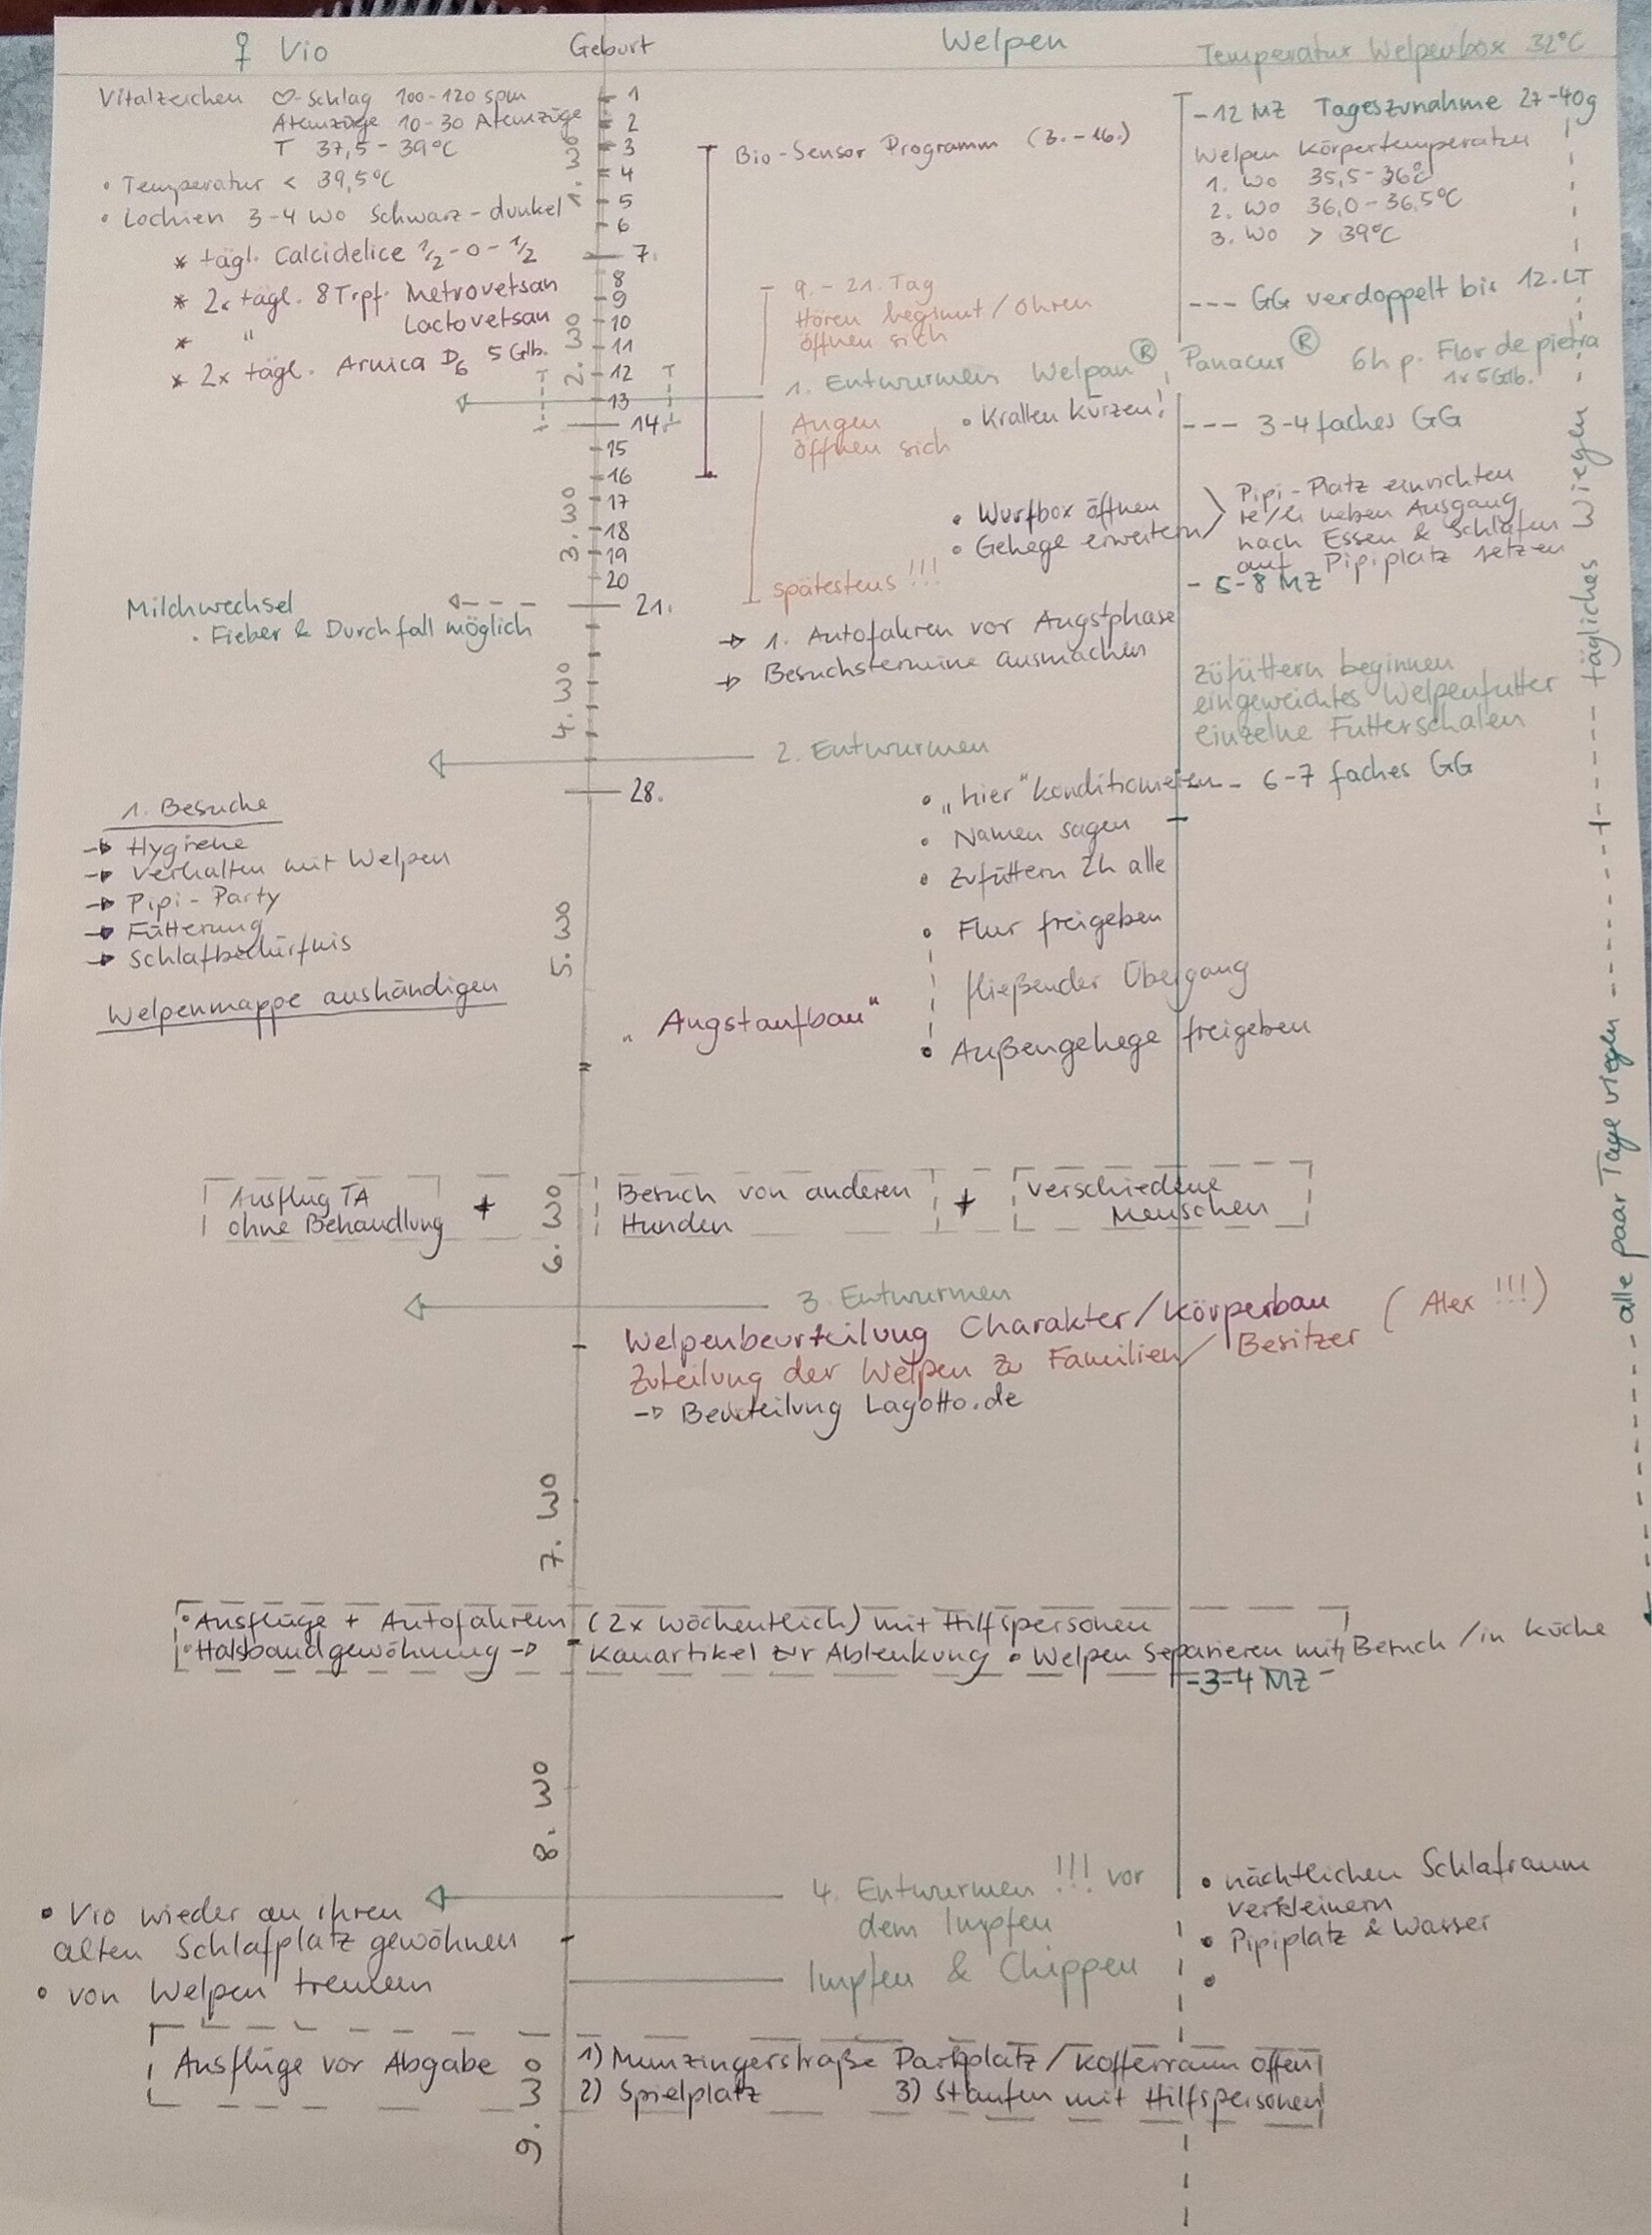 ♀ Vio
Geburt
Welpen
Temperatur Welpenbox 32°C
Vitalzeichen ♡-Schlag 100-120 spm
Atemzüge 10-30 Atemzüge
T 37,5 - 39°C
• Temperatur < 39,5°C
• Lochien 3-4 Wo Schwarz-dunkel
* tägl. Calcidelice 1/2 - 0 - 1/2
* 2x tägl. 8 Trpf. Metrovetsan
* " Lactovetsan
* 2x tägl. Arnica D6 5 Glb.
1
2
3
4
5
6
7.
8
9
10
11
12
13
14
15
16
17
18
19
20
21.
28.
1. Wo
2. Wo
3. Wo
4. Wo
5. Wo
6. Wo
7. Wo
8. Wo
9. Wo
Bio-Sensor Programm (3.-16.)
9. - 21. Tag
Hören beginnt / Ohren
öffnen sich
1. Entwurmen Welpan®, Panacur® 6h p. Flor de pietra
1x 5 Glb.
Augen
öffnen sich
• Krallen kürzen!
• Wurfbox öffnen
• Gehege erweitern
Pipi-Platz einrichten
re/li neben Ausgang
nach Essen & Schlafen
auf Pipiplatz setzen
spätestens !!!
- 12 MZ Tageszunahme 27-40g
Welpen Körpertemperatur
1. Wo 35,5-36°C
2. Wo 36,0-36,5°C
3. Wo > 39°C
--- GG verdoppelt bis 12. LT
--- 3-4 faches GG
- 5-8 MZ
Milchwechsel
• Fieber & Durchfall möglich
→ 1. Autofahren vor Angstphase
→ Besuchstermine ausmachen
zufüttern beginnen
eingeweichtes Welpenfutter
einzelne Futterschalen
2. Entwurmen
6-7 faches GG
1. Besuche
→ Hygiene
→ Verhalten mit Welpen
→ Pipi-Party
→ Fütterung
→ Schlafbedürfnis
Welpenmappe aushändigen
• „hier" konditionieren
• Namen sagen
• Zufüttern 2h alle
• Flur freigeben
fließender Übergang
• Außengehege freigeben
„Angstaufbau"
tägliches Wiegen
alle paar Tage wiegen
Ausflug TA
ohne Behandlung
+
Besuch von anderen
Hunden
+
verschiedene
Menschen
3. Entwurmen
Welpenbeurteilung Charakter/Körperbau
(Alex !!!)
Zuteilung der Welpen zu Familien/Besitzer
→ Beurteilung Lagotto.de
• Ausflüge + Autofahren (2x wöchentlich) mit Hilfspersonen
• Halsbandgewöhnung → Kauartikel zur Ablenkung • Welpen separieren mit Besuch / in Küche
- 3-4 MZ -
4. Entwurmen !!! vor
dem Impfen
Impfen & Chippen
• nächtlichen Schlafraum
verkleinern
• Pipiplatz & Wasser
•
• Vio wieder an ihren
alten Schlafplatz gewöhnen
• von Welpen trennen
Ausflüge vor Abgabe
1) Munzingerstraße Parkplatz / Kofferraum offen
2) Spielplatz 3) Staufen mit Hilfspersonen